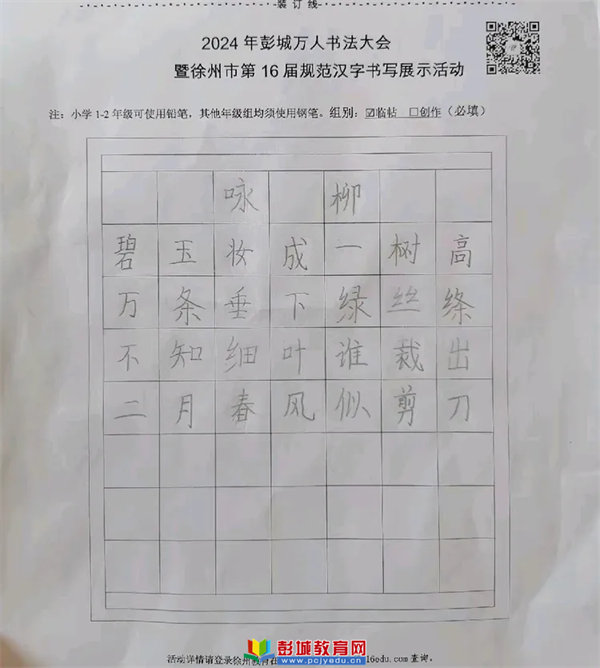 装 订 线
2024 年彭城万人书法大会
暨徐州市第 16 届规范汉字书写展示活动
注：小学 1-2 年级可使用铅笔，其他年级组均须使用钢笔。组别：☑临帖 ☐创作（必填）
咏 柳
碧 玉 妆 成 一 树 高
万 条 垂 下 绿 丝 绦
不 知 细 叶 谁 裁 出
二 月 春 风 似 剪 刀
活动详情请登录徐州教育在 16edu.com 查询。
彭城教育网
www.pcjyedu.cn